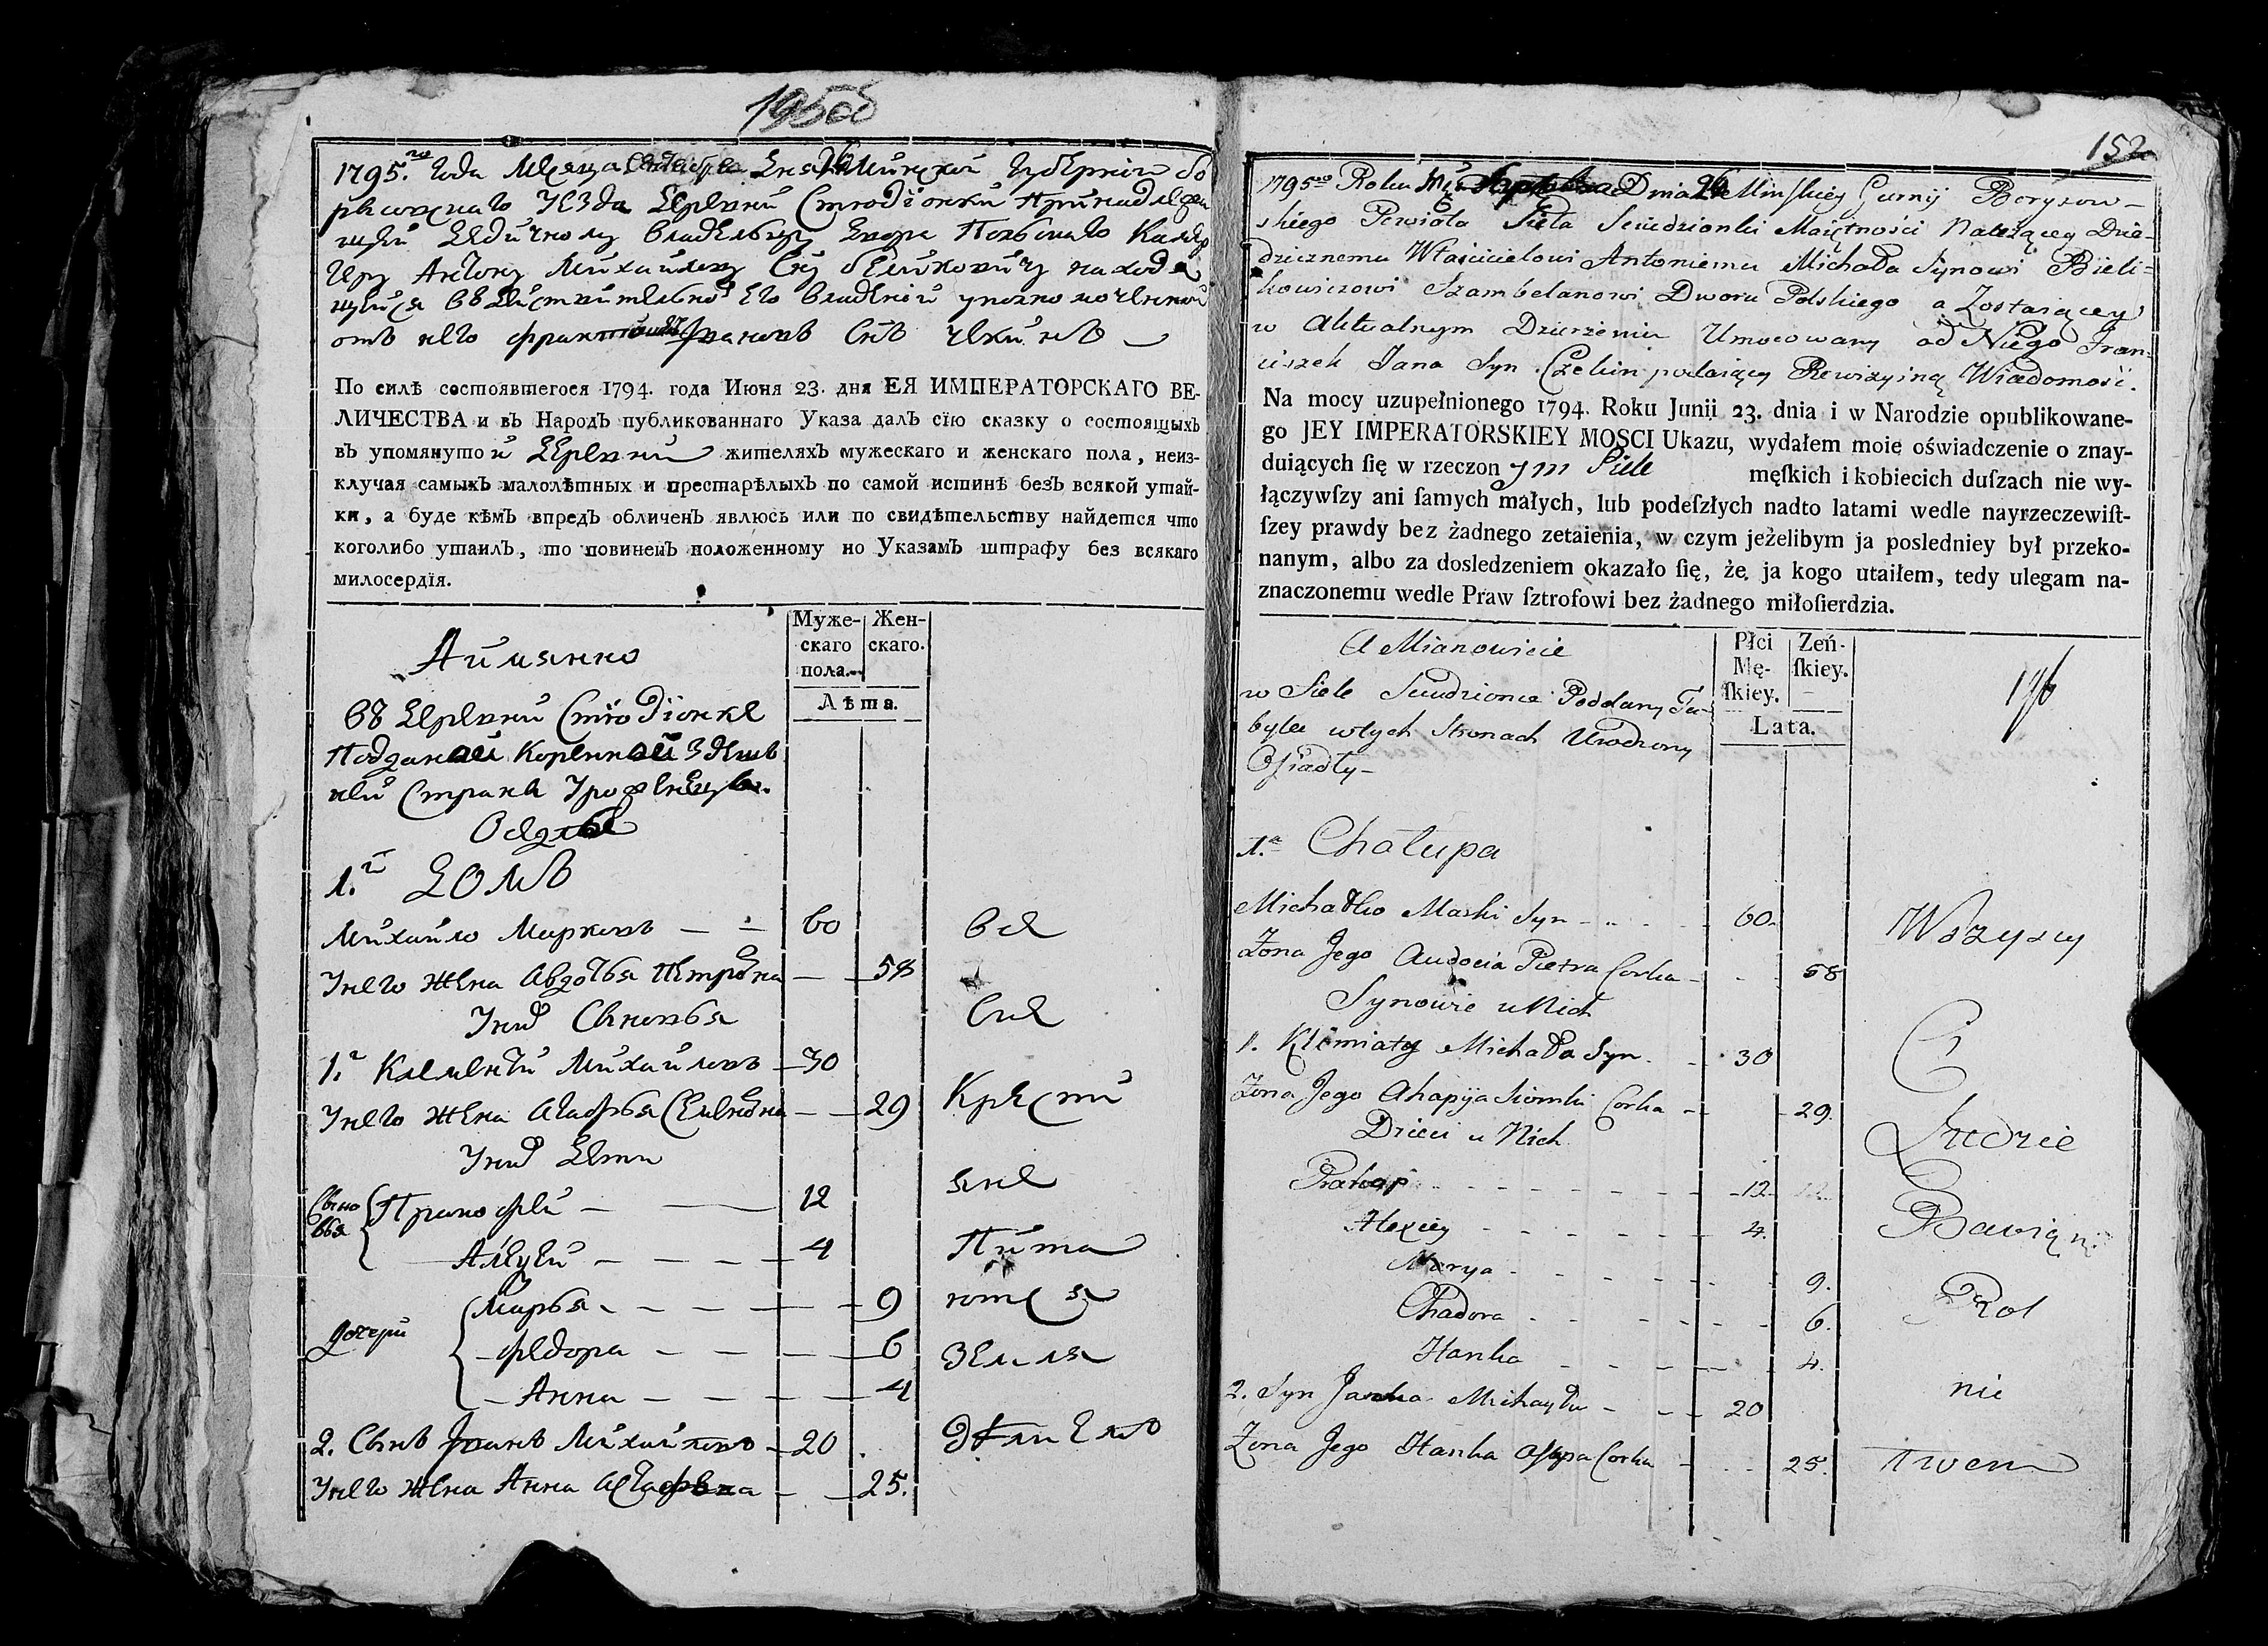 195об
1795.го Года Месяца Сентября Дня 26 Минской Губернии Бо
рисовскаго Уезда Деревни Стюдіонки Принадлежа
щей Дедичному Владельцу Двора Польскаго Камер
геру Антону Михайлову Сну Беликовичу находя
щейся в действительном его владении уполномоченный
отъ него Иванов Снъ Чекинъ
По силѣ состоявшегося 1794. года Июня 23. дня ЕЯ ИМПЕРАТОРСКАГО ВЕ-
ЛИЧЕСТВА и въ Народъ публикованнаго Указа далъ сїю сказку о состоящыхъ
въ упомянутой Деревни жителяхъ мужескаго и женскаго пола, неиз-
ключая самыхъ малолѣтныхъ и престарѣлыхъ по самой истинѣ безъ всякой утай-
ки, а буде кѣмъ впредъ обличенъ явлюсь или по свидѣтельству найдется что
коголибо утаилъ, то повиненъ положенному по Указамъ штрафу без всякаго
милосердїя.
Муже- Жен-
скаго скаго.
пола.
Лѣта.
Аимянно
въ Деревни Стюдіонке
Подданой Коренной Здешъ
ней Стране Урожденцы
Оседлые
1.й Домъ
Михайло Марковъ 60 Все
У него жена Авдотья Петровна 58
У них Сыновья Сие
1.й Клементий Михайловъ 30
У него жена Агафья Семеновна 29 Кресть
У них Дети
Сыно
вья Прокофей 12 яне
Алексей 4 Пита
дочери Марья 9 ются
Федора 6 Земля
Анна 4
2. Сынъ Иванъ Михайловъ 20
У него жена Анна 25.
152
1795go Roku Dnia 26 Minskiey Gurnij Borysow-
skiego Powiata Sieła Studzionki Maiętności Należącey Dzie-
dzicznemu Właścicielowi Antoniemu Michała Synowi Bieli-
kowiczowi Szambelanowi Dworu Polskiego a Zostaiącey
w Aktualnym Dzierżeniu Umocowany od Niego Fran-
ciszek Jana Syn Czekin podaiący Rewizyiną Wiadomość.
Na mocy uzupełnionego 1794. Roku Junii 23. dnia i w Narodzie opublikowane-
go JEY IMPERATORSKIEY MOSCI Ukazu, wydałem moię oświadczenie o znay-
duiących ſię w rzeczonym Siele męſkich i kobiecich duſzach nie wy-
łączywſzy ani ſamych małych, lub podeſzłych nadto latami wedle nayrzeczewiſt-
ſzey prawdy bez żadnego zetaienia, w czym jeżelibym ja posledniey był przeko-
nanym, albo za dosledzeniem okazało ſię, że ja kogo utaiłem, tedy ulegam na-
znaczonemu wedle Praw ſztrofowi bez żadnego miłoſierdzia.
Płci Zeń-
Mę- ſkiey.
ſkiey.
Lata.
196
A Mianowicie
w Siele Studzionce Poddany Tu-
bylec w tych Stronach Urodzony
Osiadły
1.a Chałupa
Michałko Maski Syn 60. Wszyscy
Zona Jego Audocia Pietra Corka 58
Synowie u Nich
1. Klimiaty Michała Syn 30 Ci
Zona Jego Ahapija Siomki Corka 29.
Dzieci u Nich Ludzie
Prakop 12
Alexiey 4. Bawią się
Marya 9.
Chadora 6. Rol
Hanka 4.
2. Syn Janka Michayła 20 nic
Zona Jego Hanka Osypa Corka 25. twem